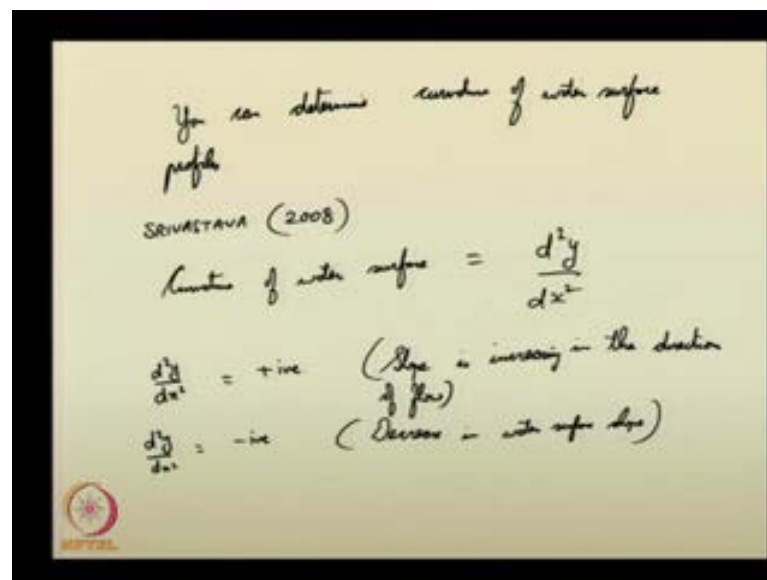 You can determine curvature of water surface
profiles
SRIVASTAVA (2008)
Curvature of water surface = d²y/dx²
d²y/dx² = +ive (Slope is increasing in the direction
of flow)
d²y/dx² = -ive (Decrease in water surface slope)
NPTEL